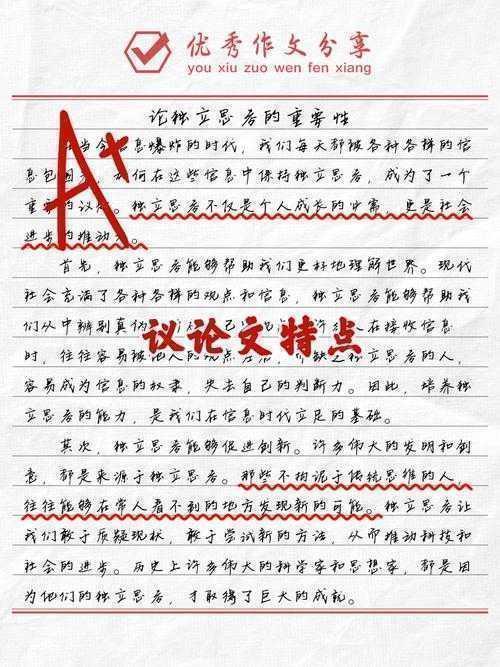 优秀作文分享
you xiu zuo wen fen xiang
论独立思考的重要性
A+
当今信息爆炸的时代，我们每天都被各种各样的信
息包围，如何在这些信息中保持独立思考，成为了一个
重要的议。独立思考不仅是个人成长的必需，更是社会
进步的推动力。
首先，独立思考能够帮助我们更好地理解世界。现代
社会充满了各种各样的观点和信息，独立思考能够帮助我
们从中辨别真伪，己许多人在接收信息
议论文特点
时，往往容易被他人的观点左右，缺乏独立思考的人，
容易成为信息的奴隶，失去自己的判断力。因此，培养独
立思考的能力，是我们在信息时代立足的基础。
其次，独立思考能够促进创新。许多伟大的发明和创
意，都是来源于独立思考。那些不拘泥于传统思维的人，
往往能够在常人看不到的地方发现新的可能。独立思考让
我们敢于质疑现状，敢于尝试新的方法，从而推动科技和
社会的进步。历史上许多伟大的科学家和思想家，都是因
为他们的独立思考，才取得了巨大的成就。